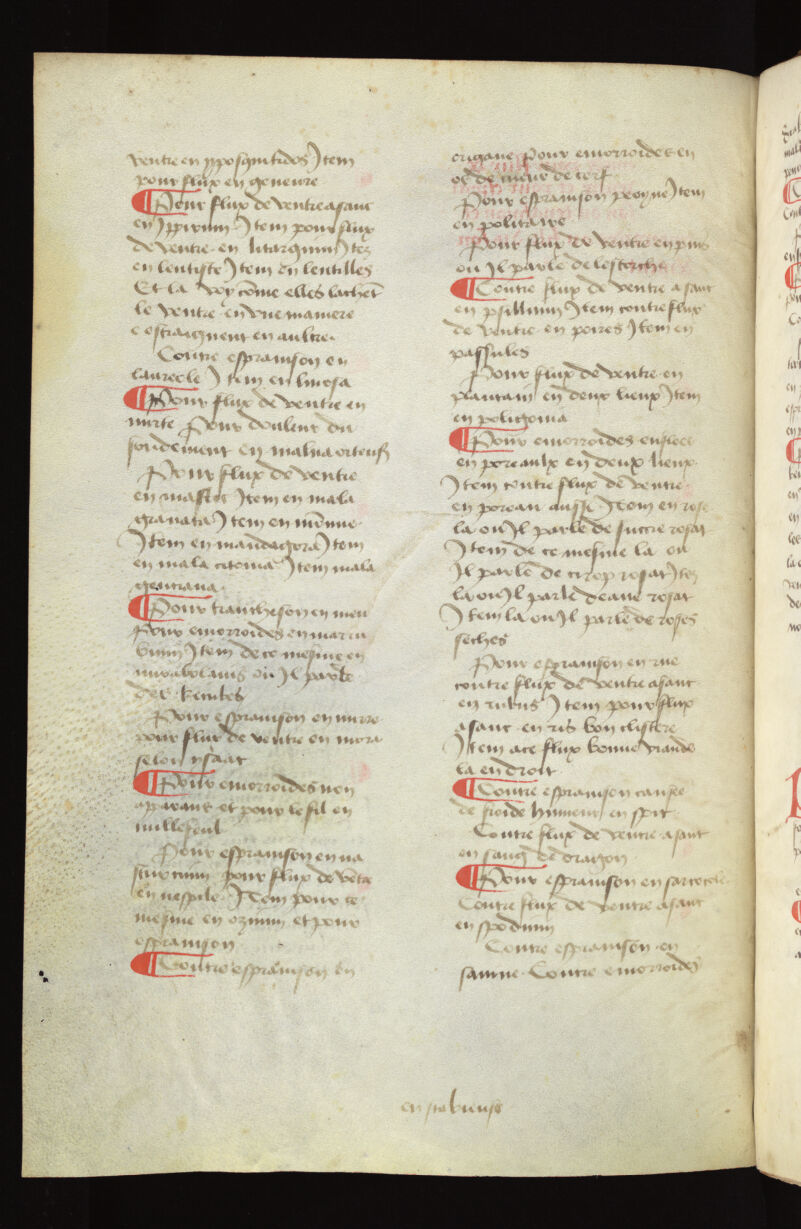 ventre en yposquitidos Item
pour flux en genevre
¶ Pour flux de ventre asanc
en ppirum Item pour flux
de ventre en litargium Itez
en lentisce Item en lentilles
Et la voy come elles lachēt
le ventre en une maniere
e estraignent en aultre.
Contre esprainson en
laureole Item en linosa
¶ Pour flux de ventre en
mirte Pour douleur du
fondement en malva ortens
Pour flux de ventre
en mastic Item en mala
granata Item en menue
Item en mandagora Item
en mala citonia Item mala
gentiana
¶ Pour trancheson en meu
Pour emorroides en marru
bium Item de ce mesme en
mirabolanis ou Il parle
des kebules
Pour esprainson en mirre
pour flux de ventre en mora
selon ysaac
¶ Pour emorroides non
aparans et pour le fil en
millefeul
Pour esprainson en na
sturcium pour flux de vētre
en nespile Item pour ce
mesme en ozimum et pour
esprainson
¶ Contre esprainson en
origane Pour emorroides en
os de cueur de cerf
Pour esprainson peoyne Item
en politaire
Pour flux de ventre en pins
ou Il parle de lestorche
¶ Contre flux de ventre asanc
en psillium Item contre flux
de ventre en poires Item en
passules
Pour flux de ventre en
plantain en deux lieux Item
en poligonia
¶ Pour emorroides enflees
en poreaulx en deux lieux
Item contre flux de ventre
en poreau aussi Item en rose
la ou Il parle de succre rosat
Item de ce mesme la ou
Il parle de cirop rosat Itez
la ou Il parle deaue rosat
Item la ou Il parle de roses
seches
Pour esprainson en rue
contre flux de ventre asanc
en rubus Item pour flux
asanc en ris bon clistere
Item ace flux bonne viande
la endroit
¶ Contre esprainson causee
de froide humeur en spic
Contre flux de ventre asanc
en sang de dragon
¶ Pour esprainson en sarcocole
Contre flux de ventre asanc
en spodium
Contre esprainson en
savine Contre emorroides
en scabieuse